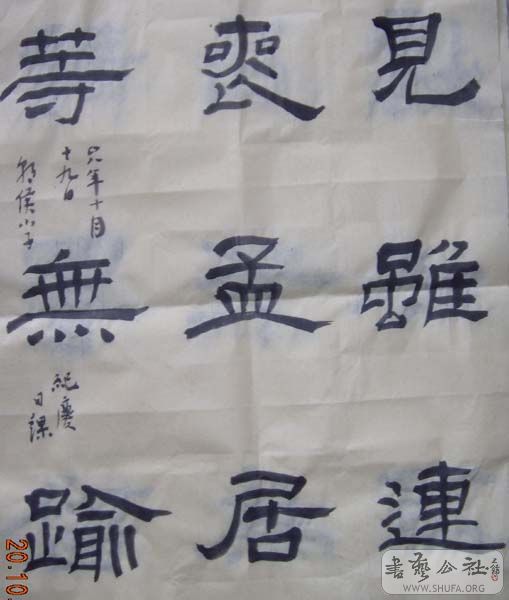 見雖連
喪孟居
䓁無踰
〇八年十月
十九日
侯小子
紀慶
日課
20.10
書藝公社
WWW.SHUFA.ORG